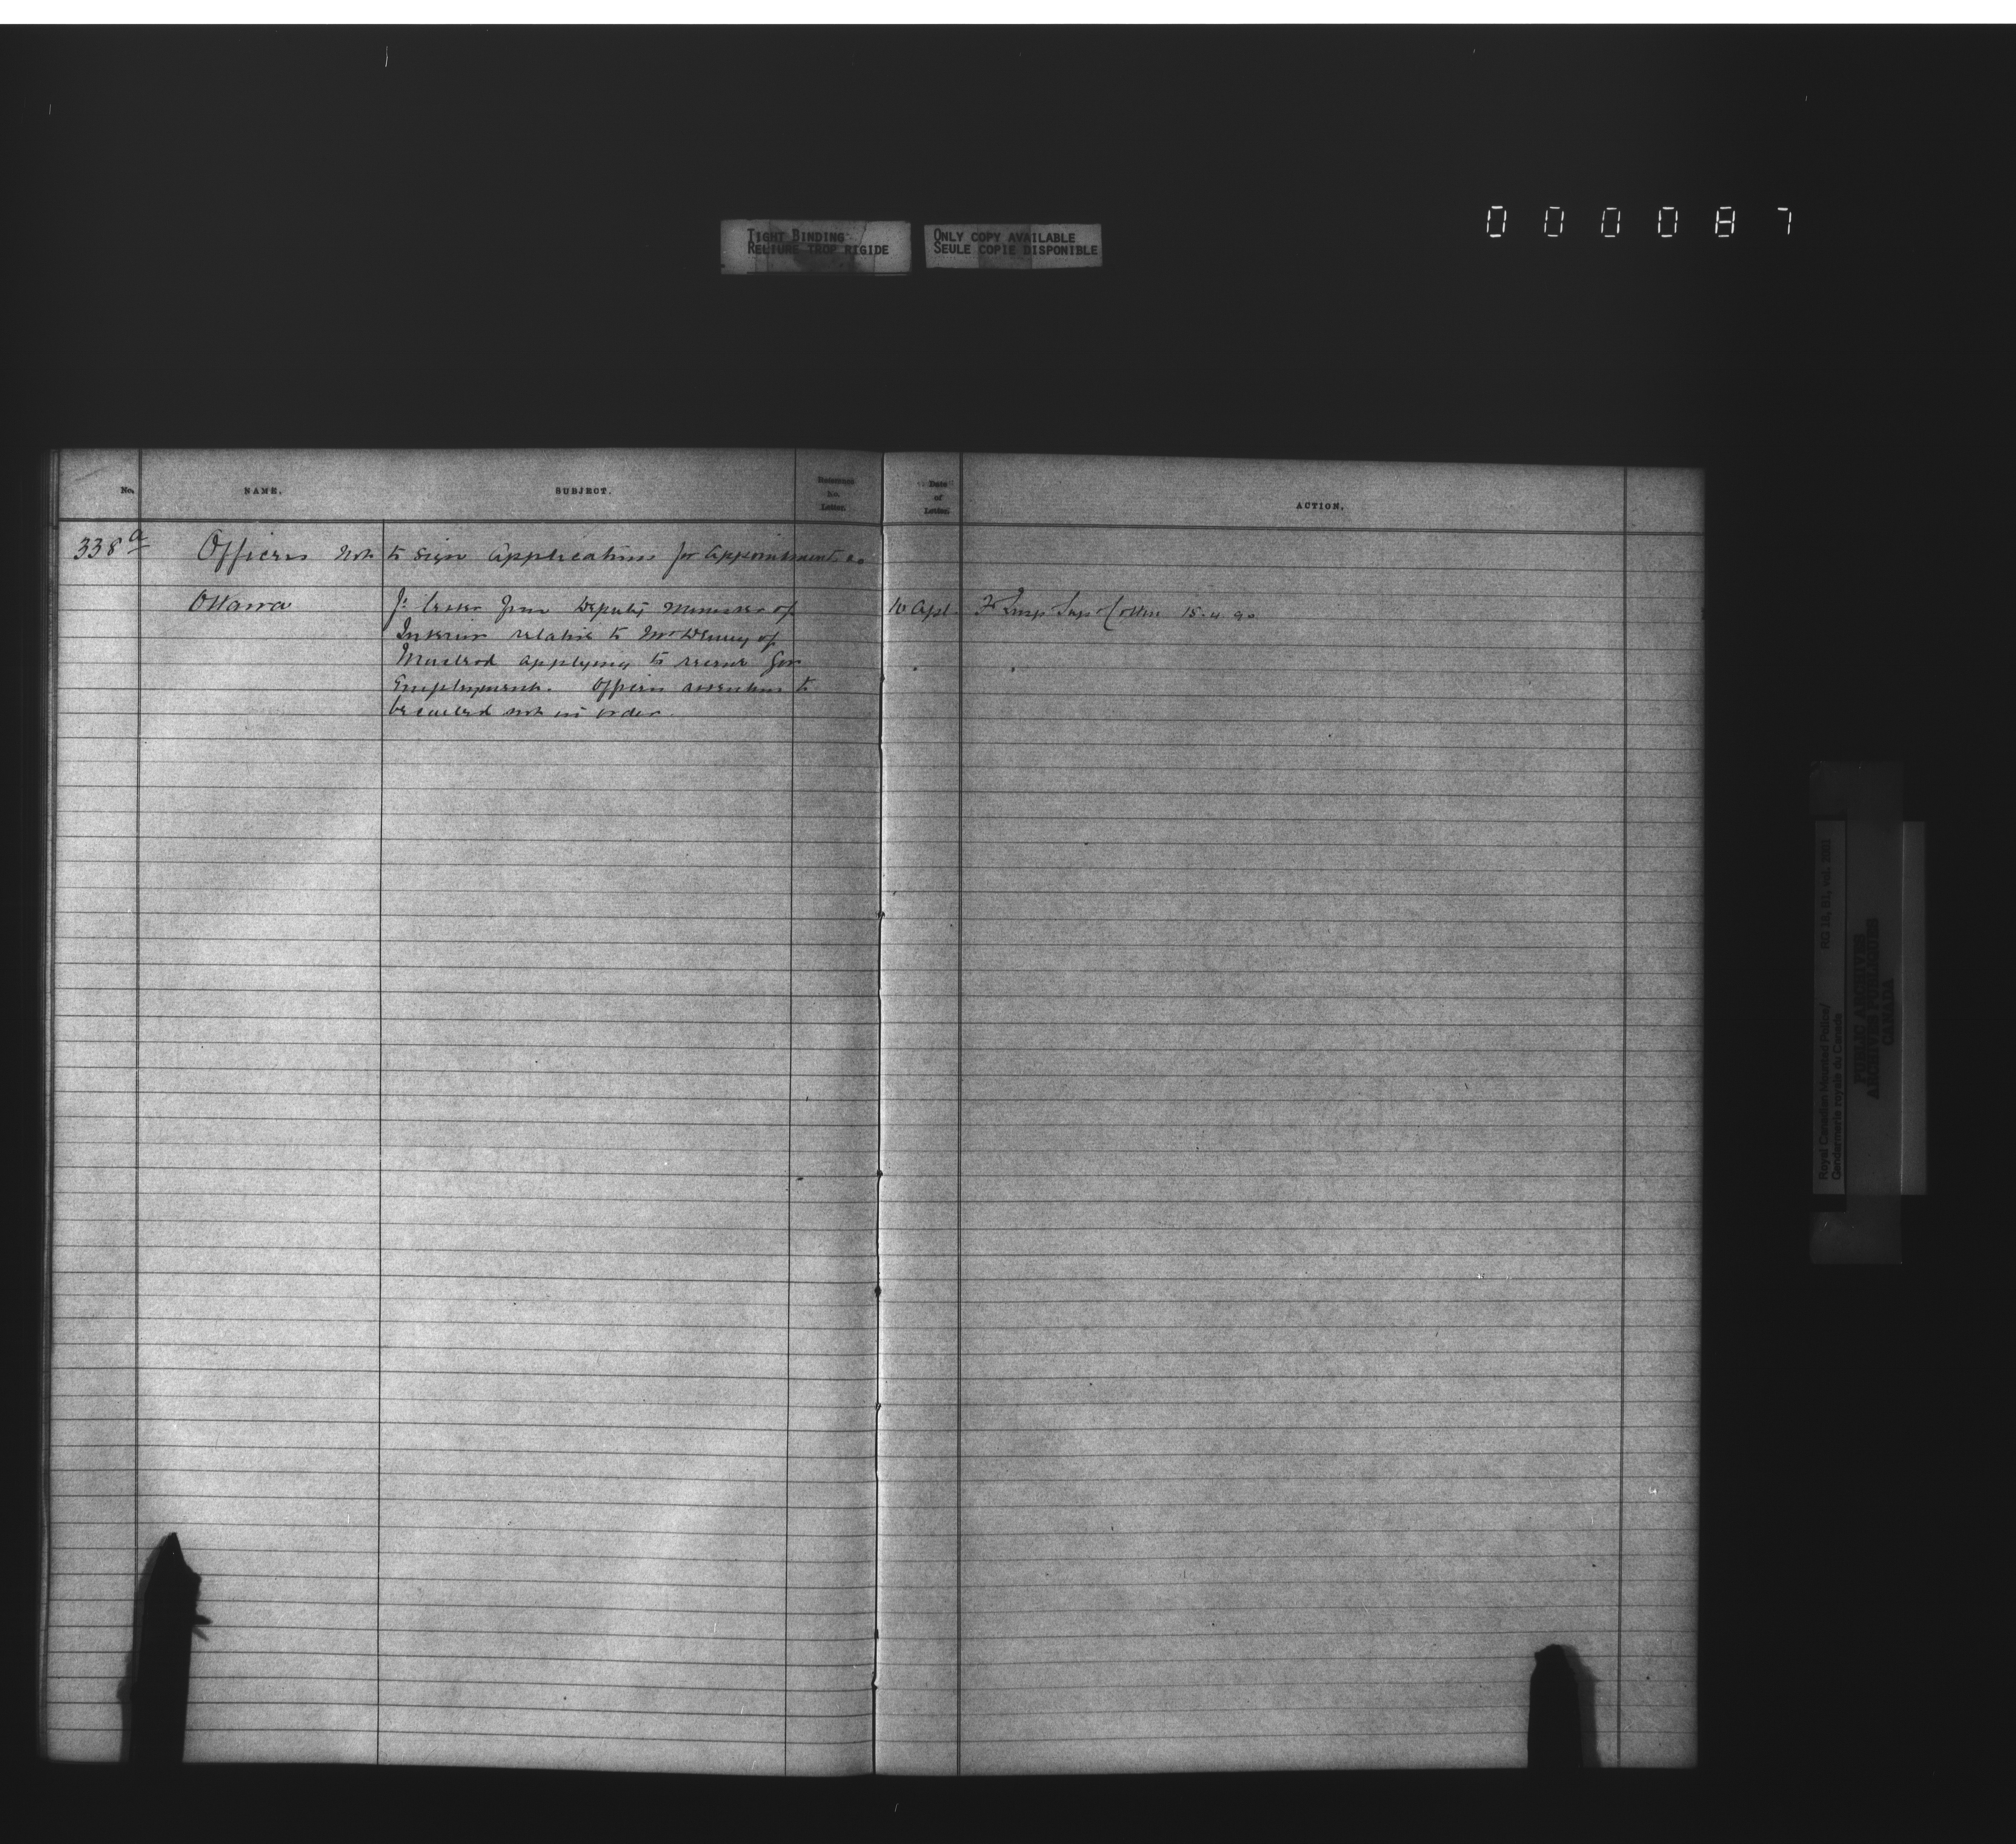 000087
TIGHT BINDING
RELIURE TROP RIGIDE
ONLY COPY AVAILABLE
SEULE COPIE DISPONIBLE
No. NAME. SUBJECT. Reference No. Letter. Date of Letter. ACTION.
338 a Officers not to sign Applications for Appointments
Ottawa Letter from Deputy Minister of 10 Apl. Cotton 15.4.90
Interior relative to Mr of
Macleod applying to for
Employment. Officers attention to
be called not in order.
Royal Canadian Mounted Police/
Gendarmerie royale du Canada
RG 18, B1, vol.
PUBLIC ARCHIVES
ARCHIVES PUBLIQUES
CANADA